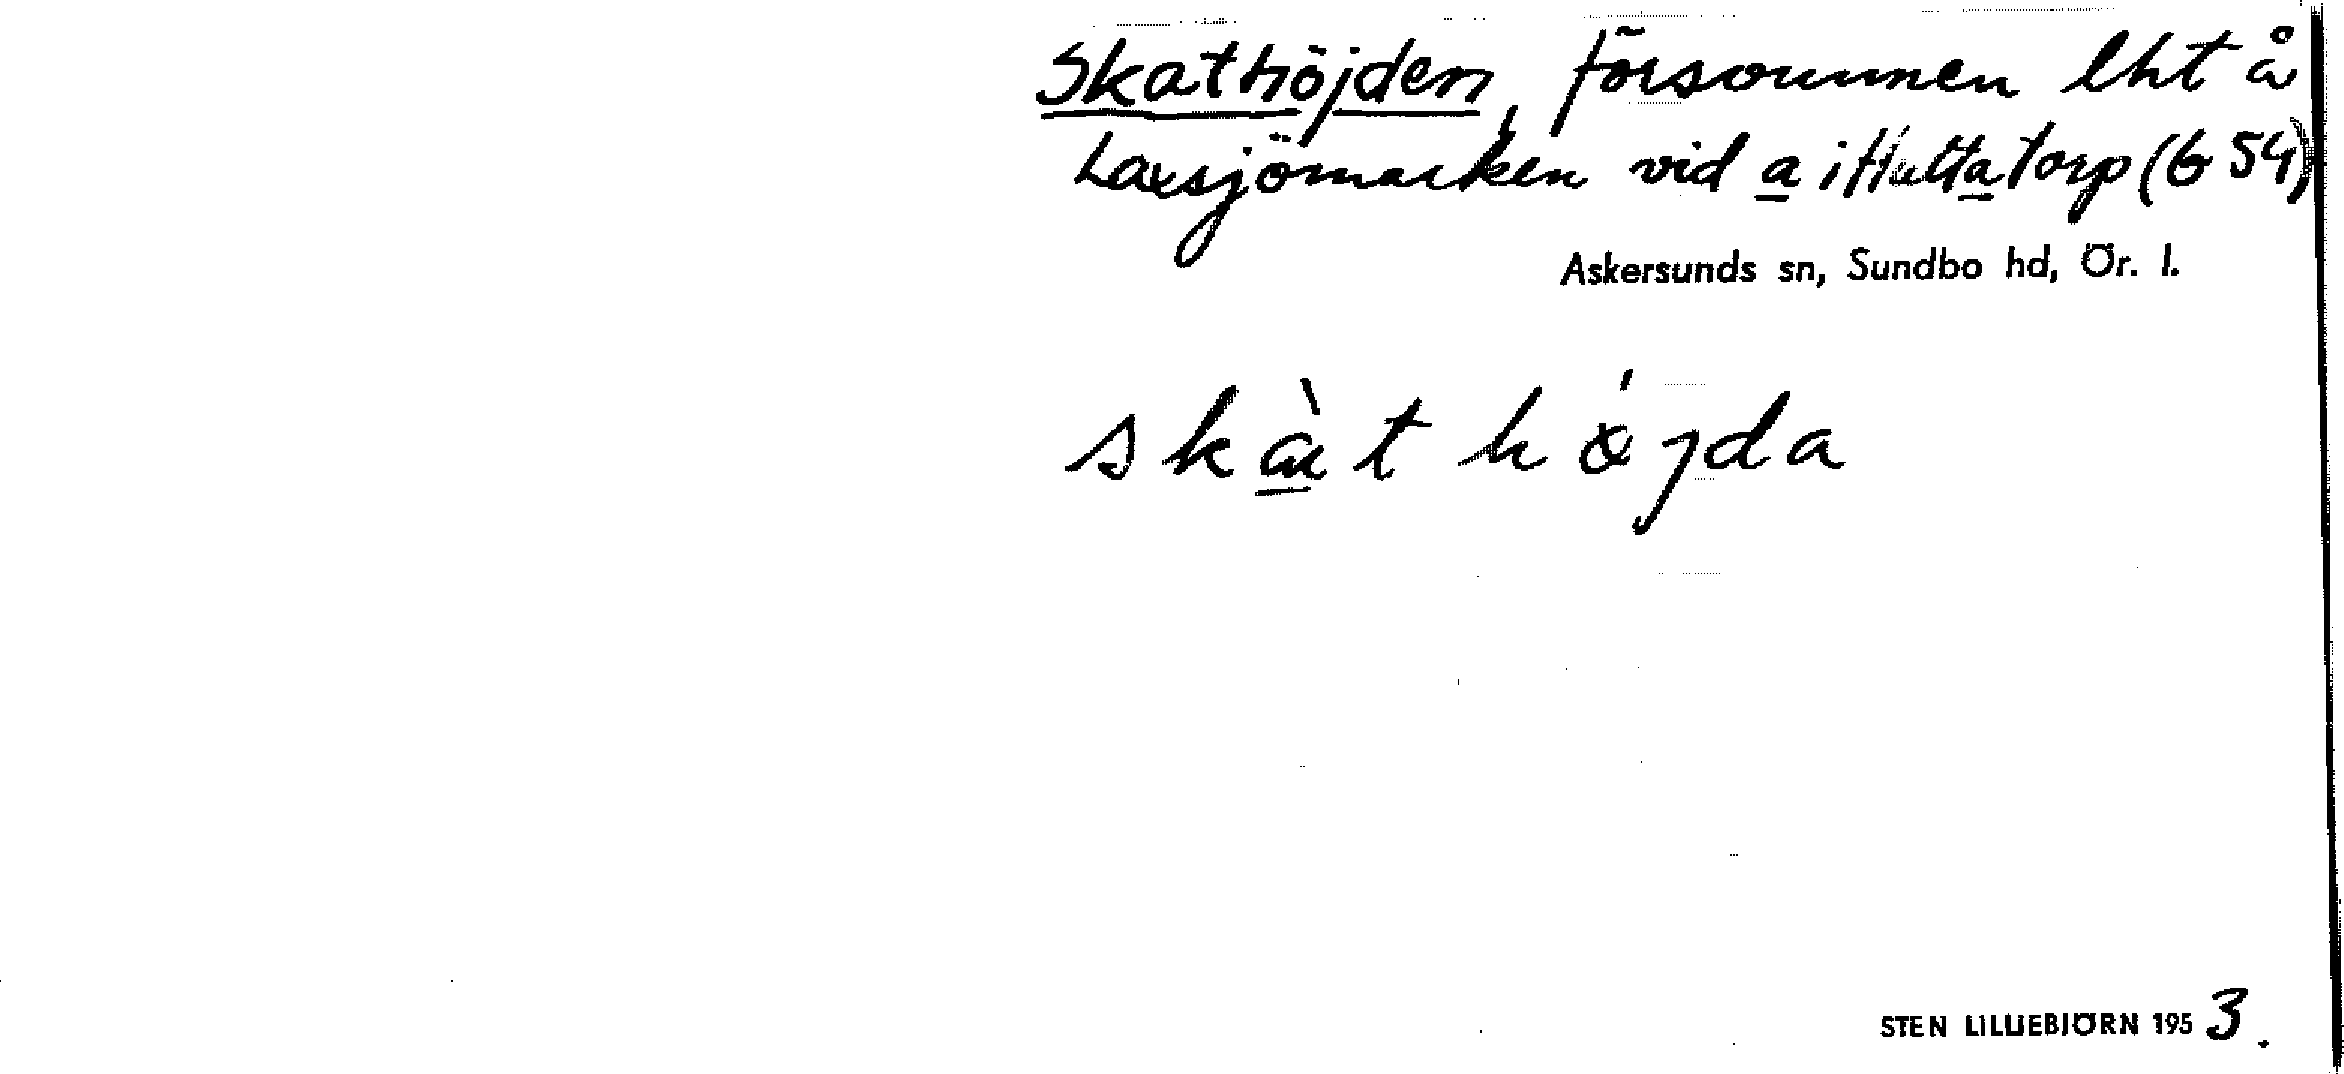 Skathöjden, försvunnen lht å
Laxsjömarken vid a i Hultatorp (6 54)
Askersunds sn, Sundbo hd, Ör. l.
skàt höjda
STEN LILLIEBJÖRN 1953.